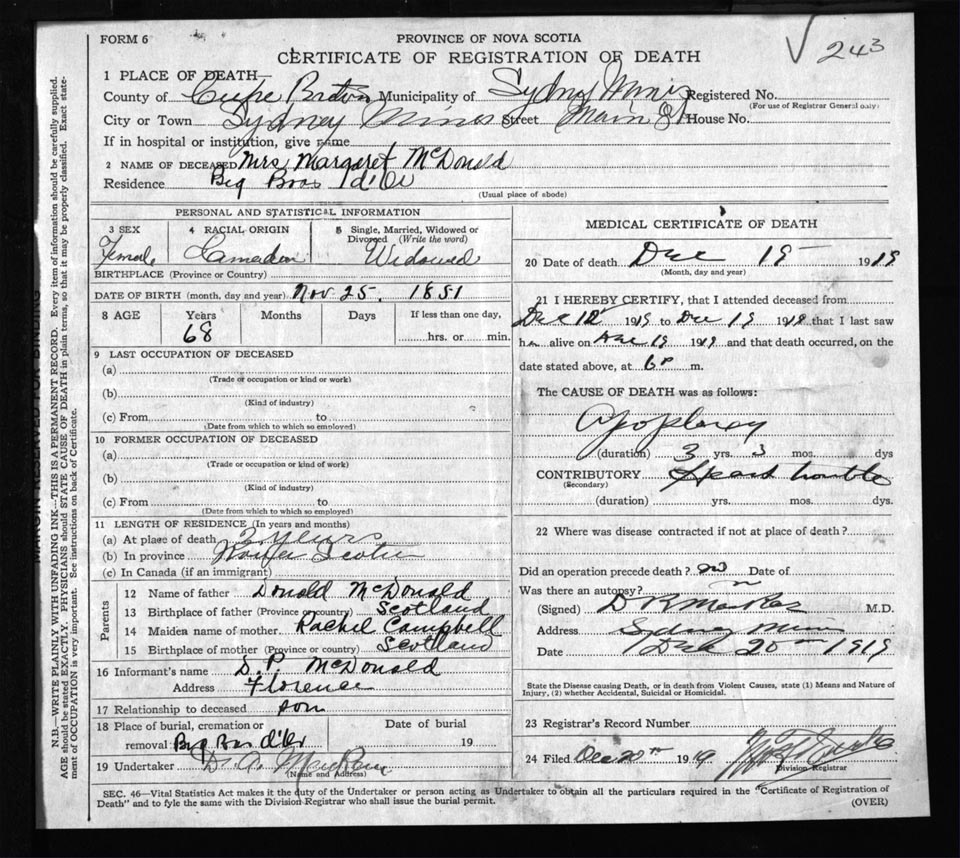 FORM 6
PROVINCE OF NOVA SCOTIA
CERTIFICATE OF REGISTRATION OF DEATH
√ 243
1 PLACE OF DEATH—
County of Cape Breton Municipality of Sydney Mines Registered No.
(For use of Registrar General only)
City or Town Sydney Mines Street Main St House No.
If in hospital or institution, give name
2 NAME OF DECEASED Mrs Margaret McDonald
Residence Big Bras d'Or
(Usual place of abode)
PERSONAL AND STATISTICAL INFORMATION
3 SEX 4 RACIAL ORIGIN 5 Single, Married, Widowed or Divorced (Write the word)
Female Canadian Widowed
BIRTHPLACE (Province or Country)
DATE OF BIRTH (month, day and year) Nov 25. 1851
8 AGE Years Months Days If less than one day,
68 hrs. or min.
9 LAST OCCUPATION OF DECEASED
(a)
(Trade or occupation or kind or work)
(b)
(Kind of industry)
(c) From to
(Date from which to which so employed)
10 FORMER OCCUPATION OF DECEASED
(a)
(Trade or occupation or kind of work)
(b)
(Kind of industry)
(c) From to
(Date from which to which so employed)
11 LENGTH OF RESIDENCE (In years and months)
(a) At place of death 3 years
(b) In province Nova Scotia
(c) In Canada (if an immigrant)
Parents
12 Name of father Donald McDonald
13 Birthplace of father (Province or country) Scotland
14 Maiden name of mother Rachel Campbell
15 Birthplace of mother (Province or country) Scotland
16 Informant's name D. P. McDonald
Address Florence
17 Relationship to deceased son
18 Place of burial, cremation or removal Big Bras d'Or
Date of burial 19
19 Undertaker D. A.
(Name and Address)
MEDICAL CERTIFICATE OF DEATH
20 Date of death Dec 19 1919
(Month, day and year)
21 I HEREBY CERTIFY, that I attended deceased from
Dec 12 1919 to Dec 19 1919 that I last saw
h alive on Dec 19 1919 and that death occurred, on the
date stated above, at 6 P m.
The CAUSE OF DEATH was as follows:
Apoplexy
(duration) 3 yrs. 3 mos. dys
CONTRIBUTORY Heart trouble
(Secondary)
(duration) yrs. mos. dys.
22 Where was disease contracted if not at place of death?
Did an operation precede death? no Date of
Was there an autopsy? no
(Signed) D R M.D.
Address Sydney Mines
Date Dec 20 1919
State the Disease causing Death, or in death from Violent Causes, state (1) Means and Nature of
Injury, (2) whether Accidental, Suicidal or Homicidal.
23 Registrar's Record Number
24 Filed Dec 20th 1919
Division Registrar
SEC. 46—Vital Statistics Act makes it the duty of the Undertaker or person acting as Undertaker to obtain all the particulars required in the "Certificate of Registration of
Death" and to fyle the same with the Division Registrar who shall issue the burial permit.
(OVER)
MARGIN RESERVED FOR BINDING
N.B.—WRITE PLAINLY WITH UNFADING INK—THIS IS A PERMANENT RECORD. Every item of information should be carefully supplied.
AGE should be stated EXACTLY. PHYSICIANS should STATE CAUSE OF DEATH in plain terms, so that it may be properly classified. Exact state-
ment of OCCUPATION is very important. See instructions on back of Certificate.